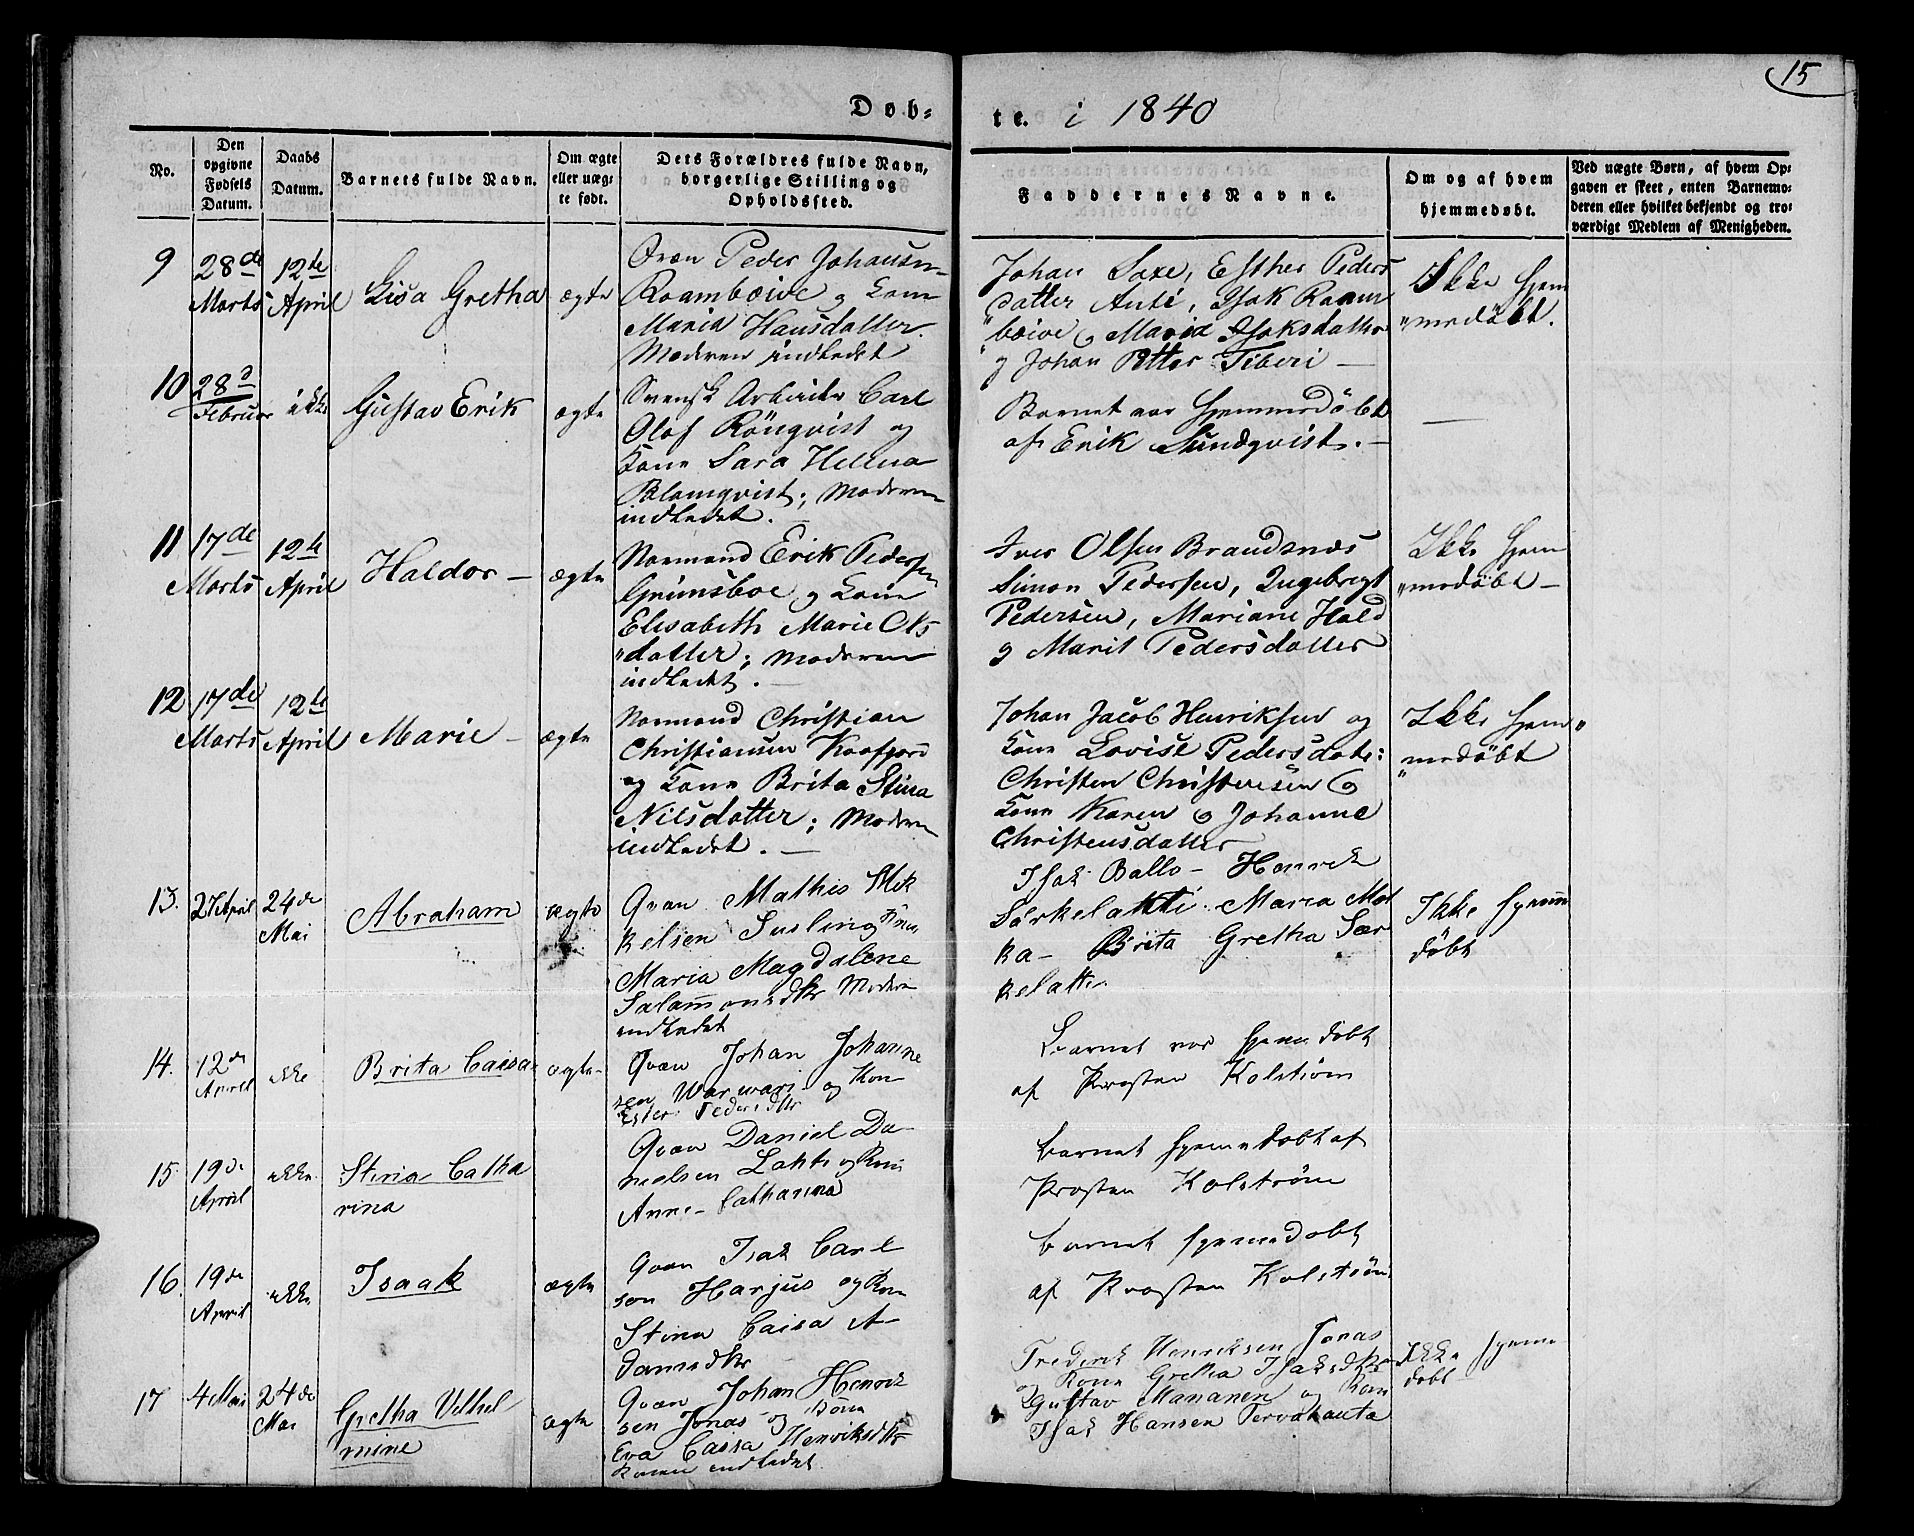 15
Døb-
te. i 1840
No.
Den
opgivne
Fødsels
Datum.
Daabs
Datum.
Barnets fulde Navn.
Om ægte
eller uæg-
te født.
Dets Forældres fulde Navn,
borgerlige Stilling og
Opholdssted.
Faddernes Navne.
Om og af hvem
hjemmedøbt.
Ved uægte Børn, af hvem Op-
gaven er skeet, enten Barnemo-
deren eller hvilket bekjendt og tro-
værdigt Medlem af Menigheden.
9
28de
Marts
12te
April
Lisa Gretha
ægte
Qvæn Peder Johansen
Raamboive og Kone
Maria Hansdatter.
Moderen indledet
Johan Saxe, Esther Peders
datter Anti, Isak Raam
boive og Maria Isaksdatter
og Johan Petter Tiberi —
Ikke hjem
"medøbt.
10
28d
Februar
ikke
Gustav Erik
ægte
Svensk Arbeider Carl
Olof Rönqvist og
Kone Sara Helena
Blomqvist; Moderen
indledet. —
Barnet var hjemmedøbt
af Erik Sundqvist. —
—
11
17de
Marts
12te
April
Haldor —
ægte
Normand Erik Pedersen
Grimsboe og Kone
Elisabeth Marie Ols
"datter; Moderen
indledet. —
Iver Olsen Brandsnæs
Simon Pedersen, Ingebrigt
Pedersen, Mariane Hald
og Marit Pedersdatter
Ikke hjem
"medøbt —
12
17de
Marts
12te
April
Marie —
ægte
Normand Christian
Christiansen Kaafjord
og Kone Brita Stina
Nilsdatter; Moderen
indledet. —
Johan Jacob Henriksen og
Kone Lovise Pedersdatr:
Christen Christensen og
Kone Karen og Johanne
Christensdatter
Ikke hjem"
"medøbt
13.
27 April
24de
Mai
Abraham
ægte
Qvæn Mathis Mik
kelsen Susling og Kone
Maria Magdalene
Salamonsdtr Moderen
indledet
Isak Ballo - Henrik
Särkelahti. Maria Mat
ka - Brita Gretha Sær
kelatti
Ikke hjem
døbt
14.
12de
April
ikke
Brita Caisa
ægte
Qvæn Johan Johanne
sen Warwari og Kone
Ester Pedersdtr
Barnet var hjemmedøbt
af Provsten Kolström
15.
19de
April
ikke
Stina Catha
rina
Qvæn Daniel Da-
nielsen Lahti og Kone
Anna Catharina
Barnet hjemmedøbt af
Provsten Kolström
16.
19de
April
ikke
Isaak
ægte
Qvæn Isak Carl
son Harjus og Kone
Stina Caisa A-
damsdtr
Barnet hjemmedøbt
af Provsten Kolström
17
4 Mai
24de
Mai
Gretha Vilhel
mine
ægte
Qvæn Johan Henrik
sen Jonas og Kone
Eva Caisa Henriksdtr
Konen indledet
Frederik Henriksen Jonas
og Kone Gretha Isaksdtr
Gustav Mananen og Kone
Isak Hansen Tervahauta
Ikke hjemme
døbt